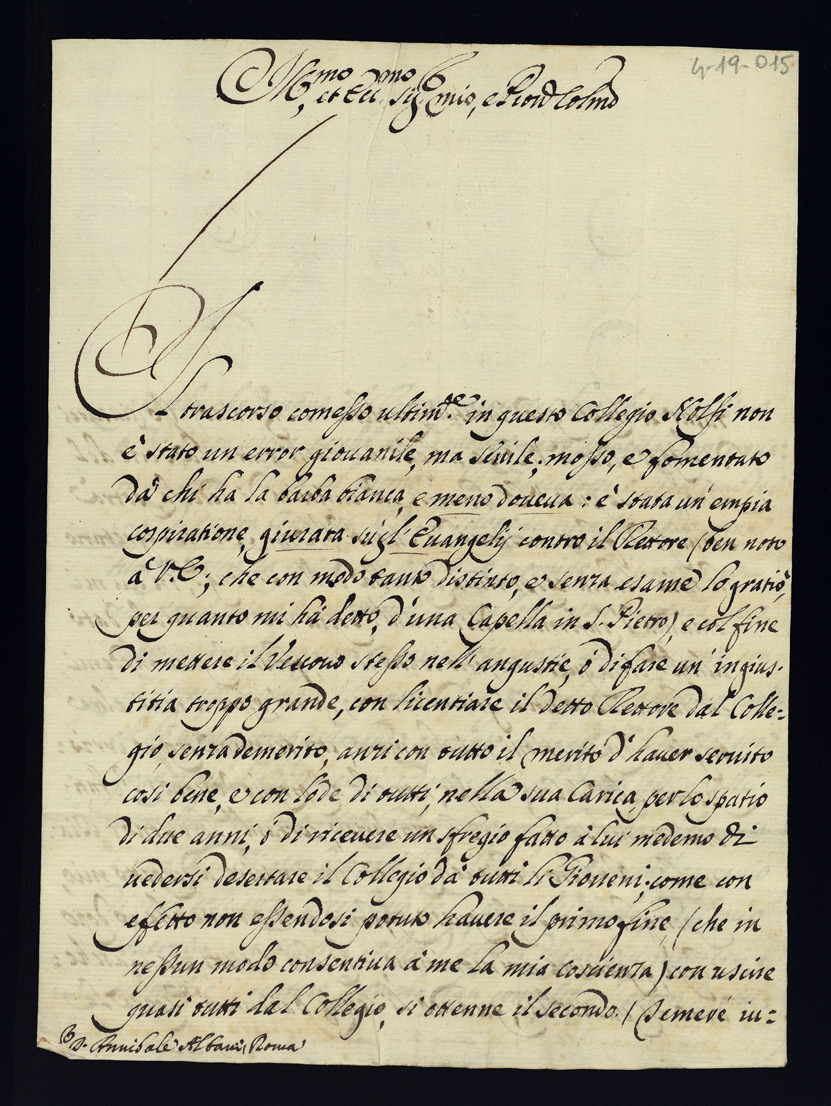 4-19-015
Ill.mo, et Ecc.mo Sig.r mio, e Pron Colmo
Il trascorso comesso ultim.te in questo Collegio Nolfi non
è stato un error giovanile, ma senile; mosso, e fomentato
dà chi hà la barba bianca, e meno doveva: è stata un' empia
cospiratione, giurata sù gl' Evangelij contro il Rettore (ben noto
à V.E; che con modo tanto distinto, e senza esame lo gratiò,
per quanto mi hà detto, d'una Capella in S. Pietro), e col fine
di mettere il Vescovo stesso nell' angustie, ò di fare un' ingius-
titia troppo grande, con licentiare il detto Rettore dal Colle=
gio, senza demerito, anzi con tutto il merito d' haver servito
così bene, e con lode di tutti, nella sua Carica per lo spatio
di due anni, ò di ricevere un sfregio fatto à lui medemo di
vedersi desertare il Collegio dà tutti li Gioveni; come con
effetto non essendosi potuto havere il primo fine, (che in
nessun modo consentiva à me la mia coscienza) con uscire
quasi tutti dal Collegio, si ottenne il secondo. (Se mevè in=
D. Annibale Albani, Roma